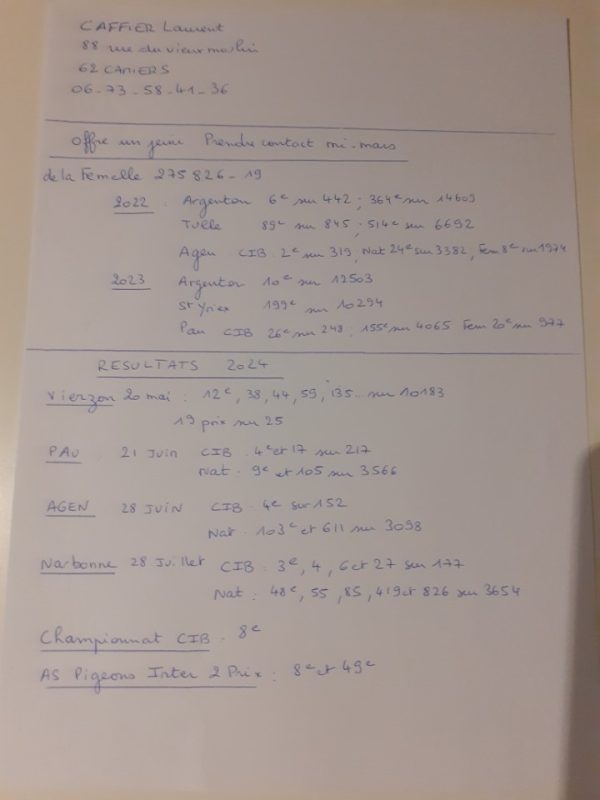 CAFFIER Laurent
88 rue du vieux moulin
62 CAMIERS
06-73-58-41-36
Offre un jeune Prendre contact mi-mars
de la Femelle 275826-19
2022 : Argenton 6e sur 442 ; 364e sur 14609
Tulle 89e sur 845 ; 514e sur 6692
Agen CIB. 2e sur 319, Nat 24e sur 3382, Fem 8e sur 1974
2023 Argenton 10e sur 12503
St Yriex 199e sur 10294
Pau CIB 26e sur 248 ; 155e sur 4065 Fem 20e sur 977
RESULTATS 2024
Vierzon 20 mai : 12e, 38, 44, 59, 135... sur 10183
19 prix sur 25
PAU : 21 Juin CIB . 4e et 17 sur 217
Nat . 9e et 105 sur 3566
AGEN 28 JUIN CIB . 4e sur 152
Nat . 103e et 611 sur 3098
Narbonne 28 Juillet CIB : 3e, 4, 6 et 27 sur 177
Nat : 48e, 55, 85, 419 et 826 sur 3654
Championnat CIB . 8e
AS Pigeons Inter 2 Prix : 8e et 49e